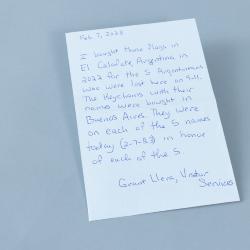 Feb. 7, 2023
I bought these flags in
El Calafate, Argentina in
2022 for the 5 Argentinians
who were lost here on 9-11.
The Keychains with their
names were bought in
Buenos Aires. They were
on each of the 5 names
today (2-7-23) in honor
of each of the 5.
Grant Llera, Visitor
Services